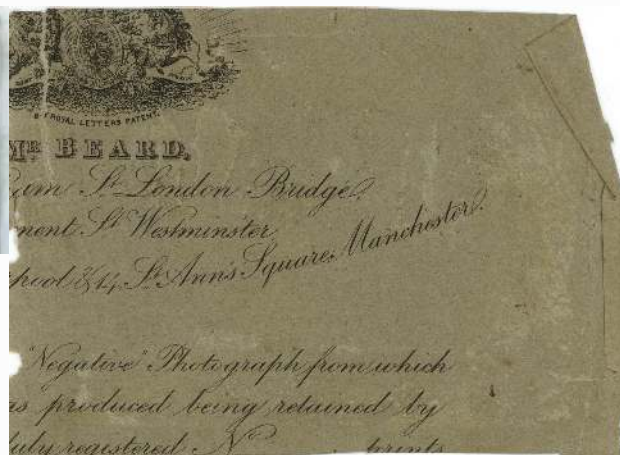 BY ROYAL LETTERS PATENT.
MR BEARD,
St London Bridge.
St Westminster
14, St Ann's Square, Manchester.
"Negative" Photograph from which
as produced being retained by
duly registered. No prints